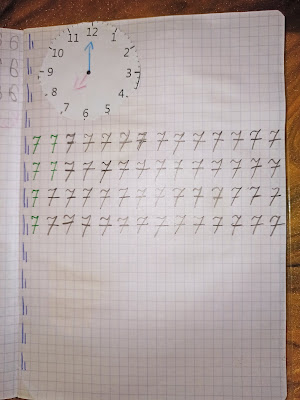 12
11 1
10 2
9 3
8 4
7 5
6
7 7 7 7 7 7 7 7 7 7 7 7 7 7
7 7 7 7 7 7 7 7 7 7 7 7 7 7
7 7 7 7 7 7 7 7 7 7 7 7 7 7
7 7 7 7 7 7 7 7 7 7 7 7 7 7